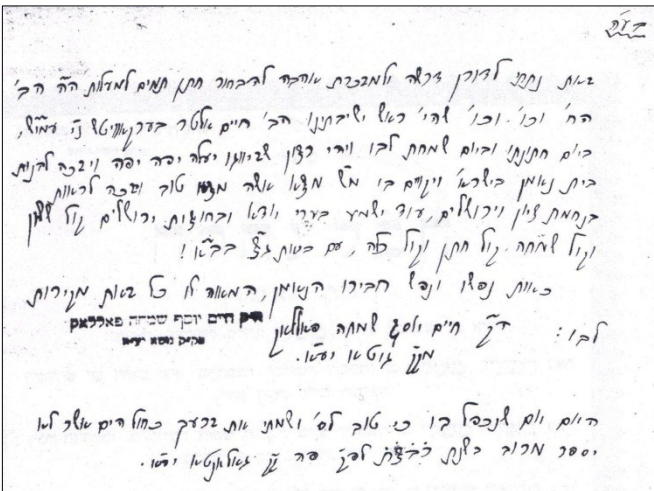 בע"ה
זאת נתתי לדורן דרשה ולמזכרת אהבה חתן תמים למעלות ה"ה הב'
הח' וכו' וכו' שהי' ראש ישיבתינו הב' חיים אלטר בערקאוויטש נ"י עמי"ש,
ביום חתונתו וביום שמחת לבו ויהי רצון שזיווגו יעלה יפה יפה ויזכה לבנות
בית נאמן בישרא' ויקויים בו מ"ש מצא אשה מצא טוב ויזכה לראות
בנחמת ציון וירושלים, עוד ישמע בערי יודא ובחוצות ירושלים קול ששון
וקול שמחה קול חתן וקול כלה, עם ביאת גצ"צ בב"א !
כאות נפשו ונפש חבירו הנאמן, המאוה לו כל זאת מקירות
לבו : הק' חיים יוסף שמחה פאללאק
חיים יוסף שמחה פאללאק
מק"ק גוטא יע"א.
היום יום שנכפל בו כי טוב לס' ושמתי את זרעך כחול הים אשר לא
יספר מרוב בשנת לפ"ק פה ק"ק גאלאנטא יע"א.